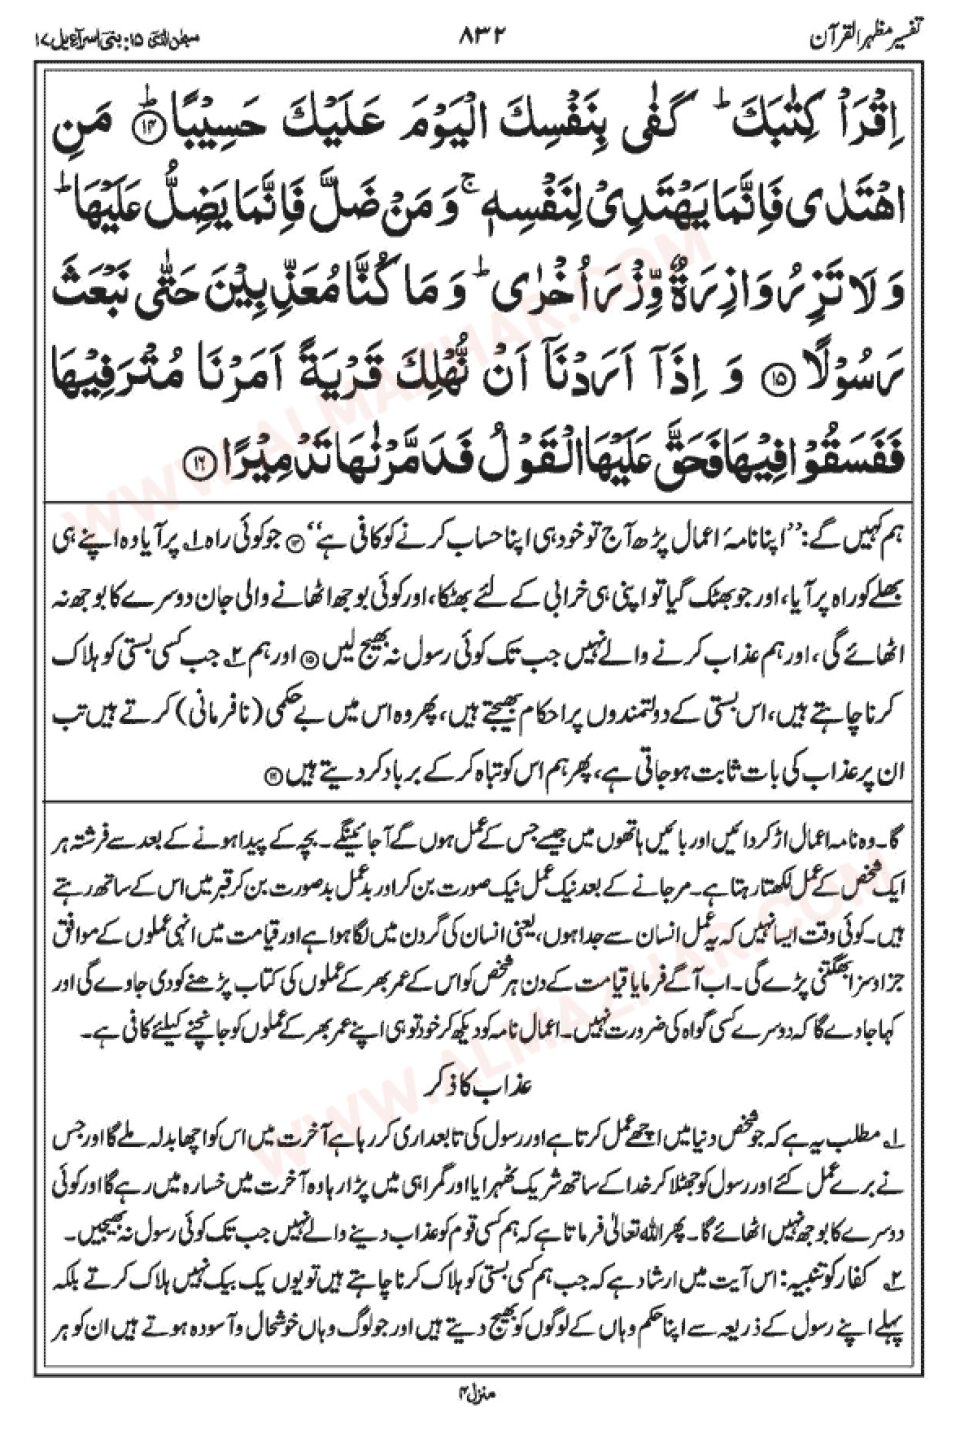 تفسیر مظہر القرآن
۸۳۲
سبحٰن الذی ۱۵: بنی اسرآءیل ۱۷
اِقْرَاْ كِتٰبَكَ ؕ كَفٰی بِنَفْسِكَ الْیَوْمَ عَلَیْكَ حَسِیْبًا ؕ۝۱۴ مَنِ
اهْتَدٰی فَاِنَّمَا یَهْتَدِیْ لِنَفْسِهٖ ۚ وَ مَنْ ضَلَّ فَاِنَّمَا یَضِلُّ عَلَیْهَا ؕ
وَ لَا تَزِرُ وَازِرَةٌ وِّزْرَ اُخْرٰی ؕ وَ مَا كُنَّا مُعَذِّبِیْنَ حَتّٰی نَبْعَثَ
رَسُوْلًا ۝۱۵ وَ اِذَاۤ اَرَدْنَاۤ اَنْ نُّهْلِكَ قَرْیَةً اَمَرْنَا مُتْرَفِیْهَا
فَفَسَقُوْا فِیْهَا فَحَقَّ عَلَیْهَا الْقَوْلُ فَدَمَّرْنٰهَا تَدْمِیْرًا ۝۱۶
ہم کہیں گے: ’’اپنا نامۂ اعمال پڑھ آج تو خود ہی اپنا حساب کرنے کو کافی ہے‘‘ ۝۱۴ جو کوئی راہ ۱؎ پر آیا وہ اپنے ہی
بھلے کو راہ پر آیا، اور جو بھٹک گیا تو اپنی ہی خرابی کے لئے بھٹکا، اور کوئی بوجھ اٹھانے والی جان دوسرے کا بوجھ نہ
اٹھائے گی، اور ہم عذاب کرنے والے نہیں جب تک کوئی رسول نہ بھیج لیں ۝۱۵ اور ہم ۲؎ جب کسی بستی کو ہلاک
کرنا چاہتے ہیں، اس بستی کے دولتمندوں پر احکام بھیجتے ہیں، پھر وہ اس میں بے حکمی (نافرمانی) کرتے ہیں تب
ان پر عذاب کی بات ثابت ہو جاتی ہے، پھر ہم اس کو تباہ کر کے برباد کر دیتے ہیں ۝۱۶
گا۔ وہ نامہ اعمال اڑ کر دائیں اور بائیں ہاتھوں میں جیسے جس کے عمل ہوں گے آ جائینگے۔ بچہ کے پیدا ہونے کے بعد سے فرشتہ ہر
ایک شخص کے عمل لکھتا رہتا ہے۔ مر جانے کے بعد نیک عمل نیک صورت بن کر اور بد عمل بد صورت بن کر قبر میں اس کے ساتھ رہتے
ہیں۔ کوئی وقت ایسا نہیں کہ یہ عمل انسان سے جدا ہوں، یعنی انسان کی گردن میں لگا ہوا ہے اور قیامت میں انہی عملوں کے موافق
جزا و سزا بھگتنی پڑے گی۔ اب آگے فرمایا قیامت کے دن ہر شخص کو اس کے عمر بھر کے عملوں کی کتاب پڑھنے کو دی جاوے گی اور
کہا جاوے گا کہ دوسرے کسی گواہ کی ضرورت نہیں۔ اعمال نامہ کو دیکھ کر خود تو ہی اپنے عمر بھر کے عملوں کو جانچنے کیلئے کافی ہے۔
عذاب کا ذکر
۱؎ مطلب یہ ہے کہ جو شخص دنیا میں اچھے عمل کرتا ہے اور رسول کی تابعداری کر رہا ہے آخرت میں اس کو اچھا بدلہ ملے گا اور جس
نے برے عمل کئے اور رسول کو جھٹلا کر خدا کے ساتھ شریک ٹھہرایا اور گمراہی میں پڑا رہا وہ آخرت میں خسارہ میں رہے گا اور کوئی
دوسرے کا بوجھ نہیں اٹھائے گا۔ پھر اللہ تعالیٰ فرماتا ہے کہ ہم کسی قوم کو عذاب دینے والے نہیں جب تک کوئی رسول نہ بھیجیں۔
۲؎ کفار کو تنبیہ: اس آیت میں ارشاد ہے کہ جب ہم کسی بستی کو ہلاک کرنا چاہتے ہیں تو یوں یک بیک نہیں ہلاک کرتے بلکہ
پہلے اپنے رسول کے ذریعہ سے اپنا حکم وہاں کے لوگوں کو بھیج دیتے ہیں اور جو لوگ وہاں خوشحال و آسودہ ہوتے ہیں ان کو ہر
منزل ۴
WWW.ALMAZHAR.COM
WWW.ALMAZHAR.COM